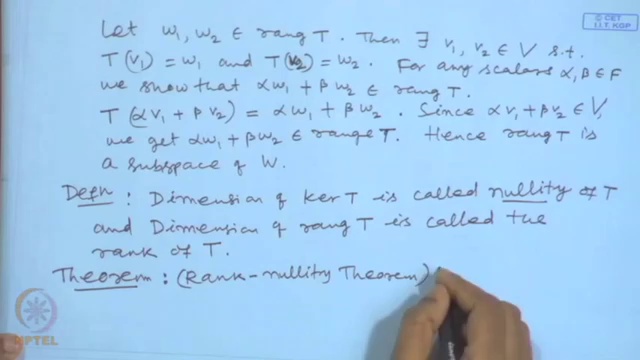 © CET
I.I.T. KGP
Let w₁, w₂ ∈ rang T. Then ∃ v₁, v₂ ∈ V s.t.
T(v₁) = w₁ and T(v₂) = w₂. For any scalars α, β ∈ F
we show that αw₁ + βw₂ ∈ rang T.
T(αv₁ + βv₂) = αw₁ + βw₂. Since αv₁ + βv₂ ∈ V,
we get αw₁ + βw₂ ∈ range T. Hence rang T is
a subspace of W.
Defn : Dimension of ker T is called nullity of T
and Dimension of rang T is called the
rank of T.
Theorem : (Rank-nullity Theorem)
NPTEL